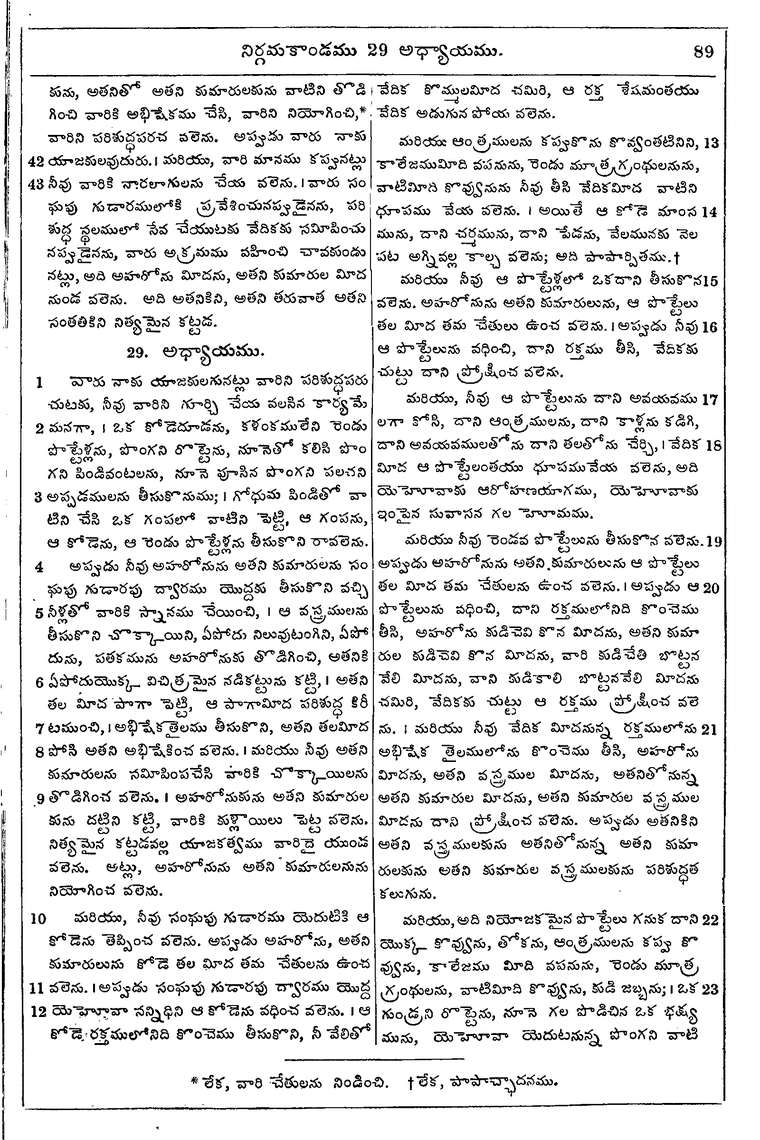 నిర్గమకాండము 29 అధ్యాయము.
89
కును, అతనితో అతని కుమారులకును వాటిని తొడి
గించి వారికి అభిషేకము చేసి, వారిని నియోగించి,*
వారిని పరిశుద్ధపరచ వలెను. అప్పుడు వారు నాకు
42 యాజకులవుదురు. । మరియు, వారి మానము కప్పునట్లు
43 నీవు వారికి నారలాగులను చేయ వలెను. । వారు సం
ఘపు గుడారములోకి ప్రవేశించునప్పుడైనను, పరి
శుద్ధ స్థలములో సేవ చేయుటకు వేదికకు సమీపించు
నప్పుడైనను, వారు అక్రమము వహించి చావకుండు
నట్లు, అది అహరోను మీదను, అతని కుమారుల మీద
నుండ వలెను. అది అతనికిని, అతని తరువాత అతని
సంతతికిని నిత్యమైన కట్టడ.
29. అధ్యాయము.
1 వారు నాకు యాజకులగునట్లు వారిని పరిశుద్ధపరు
చుటకు, నీవు వారిని గూర్చి చేయ వలసిన కార్యమే
2 మనగా, । ఒక కోడెదూడను, కళంకములేని రెండు
పొట్టేళ్లను, పొంగని రొట్టెను, నూనెతో కలిసి పొం
గని పిండివంటలను, నూనె పూసిన పొంగని పలచని
3 అప్పడములను తీసుకొనుము; । గోధుమ పిండితో వా
టిని చేసి ఒక గంపలో వాటిని పెట్టి, ఆ గంపను,
ఆ కోడెను, ఆ రెండు పొట్టేళ్లను తీసుకొని రావలెను.
4 అప్పుడు నీవు అహరోనును అతని కుమారులను సం
ఘపు గుడారపు ద్వారము యొద్దకు తీసుకొని వచ్చి
5 నీళ్లతో వారికి స్నానము చేయించి, । ఆ వస్త్రములను
తీసుకొని చొక్కాయిని, ఏపోదు నిలువుటంగిని, ఏపో
దును, పతకమును అహరోనుకు తొడిగించి, అతనికి
6 ఏపోదుయొక్క విచిత్రమైన నడికట్టును కట్టి, । అతని
తల మీద పాగా పెట్టి, ఆ పాగామీద పరిశుద్ధ కిరీ
7 టముంచి, । అభిషేకతైలము తీసుకొని, అతని తలమీద
8 పోసి అతని అభిషేకించ వలెను. । మరియు నీవు అతని
కుమారులను సమీపింపచేసి వారికి చొక్కాయిలను
9 తొడిగించ వలెను. । అహరోనుకును అతని కుమారుల
కును దట్టిని కట్టి, వారికి కుళ్లాయిలు పెట్ట వలెను.
నిత్యమైన కట్టడవల్ల యాజకత్వము వారిదై యుండ
వలెను. అట్లు, అహరోనును అతని కుమారులనును
నియోగించ వలెను.
10 మరియు, నీవు సంఘపు గుడారము యెదుటికి ఆ
కోడెను తెప్పించ వలెను. అప్పుడు అహరోను, అతని
కుమారులును కోడె తల మీద తమ చేతులను ఉంచ
11 వలెను. । అప్పుడు సంఘపు గుడారపు ద్వారము యొద్ద
12 యెహోవా సన్నిధిని ఆ కోడెను వధించ వలెను. । ఆ
కోడె రక్తములోనిది కొంచెము తీసుకొని, నీ వేలితో
వేదిక కొమ్ములమీద చమిరి, ఆ రక్త శేషమంతయు
వేదిక అడుగున పోయ వలెను.
మరియు ఆంత్రములను కప్పుకొను కొవ్వంతటినిని, 13
కాలేజముమీది వపనును, రెండు మూత్రగ్రంథులనును,
వాటిమీది కొవ్వునును నీవు తీసి వేదికమీద వాటిని
ధూపము వేయ వలెను. । అయితే ఆ కోడె మాంస 14
మును, దాని చర్మమును, దాని పేడను, వేలమునకు వెల
పట అగ్నివల్ల కాల్చ వలెను; అది పాపార్పితము.†
మరియు నీవు ఆ పొట్టేళ్లలో ఒకదాని తీసుకొన 15
వలెను. అహరోనును అతని కుమారులును, ఆ పొట్టేలు
తల మీద తమ చేతులు ఉంచ వలెను. । అప్పుడు నీవు 16
ఆ పొట్టేలును వధించి, దాని రక్తము తీసి, వేదికకు
చుట్టు దాని ప్రోక్షించ వలెను.
మరియు, నీవు ఆ పొట్టేలును దాని అవయవము 17
లగా కోసి, దాని ఆంత్రములను, దాని కాళ్లను కడిగి,
దాని అవయవములతోను దాని తలతోను చేర్చి, । వేదిక 18
మీద ఆ పొట్టేలంతయు ధూపమువేయ వలెను, అది
యెహోవాకు ఆరోహణయాగము, యెహోవాకు
ఇంపైన సువాసన గల హెూమము.
మరియు నీవు రెండవ పొట్టేలును తీసుకొన వలెను. 19
అప్పుడు అహరోనును అతని కుమారులును ఆ పొట్టేలు
తల మీద తమ చేతులను ఉంచ వలెను. । అప్పుడు ఆ 20
పొట్టేలును వధించి, దాని రక్తములోనిది కొంచెము
తీసి, అహరోను కుడిచెవి కొన మీదను, అతని కుమా
రుల కుడిచెవి కొన మీదను, వారి కుడిచేతి బొట్టన
వేలి మీదను, వాని కుడికాలి బొట్టనవేలి మీదను
చమిరి, వేదికకు చుట్టు ఆ రక్తము ప్రోక్షించ వలె
ను. । మరియు నీవు వేదిక మీదనున్న రక్తములోను 21
అభిషేక తైలములోను కొంచెము తీసి, అహరోను
మీదను, అతని వస్త్రముల మీదను, అతనితోనున్న
అతని కుమారుల మీదను, అతని కుమారుల వస్త్రముల
మీదను దాని ప్రోక్షించ వలెను. అప్పుడు అతనికిని
అతని వస్త్రములకును అతనితోనున్న అతని కుమా
రులకును అతని కుమారుల వస్త్రములకును పరిశుద్ధత
కలుగును.
మరియు, అది నియోజకమైన పొట్టేలు గనుక దాని 22
యొక్క కొవ్వును, తోకను, ఆంత్రములను కప్పు కొ
వ్వును, కాలేజము మీది వపనును, రెండు మూత్ర
గ్రంథులను, వాటిమీది కొవ్వును, కుడి జబ్బను; । ఒక 23
గుండ్రని రొట్టెను, నూనె గల పొడిచిన ఒక భక్ష్య
మును, యెహోవా యెదుటనున్న పొంగని వాటి
* లేక, వారి చేతులను నిండించి. † లేక, పాపాచ్ఛాదనము.